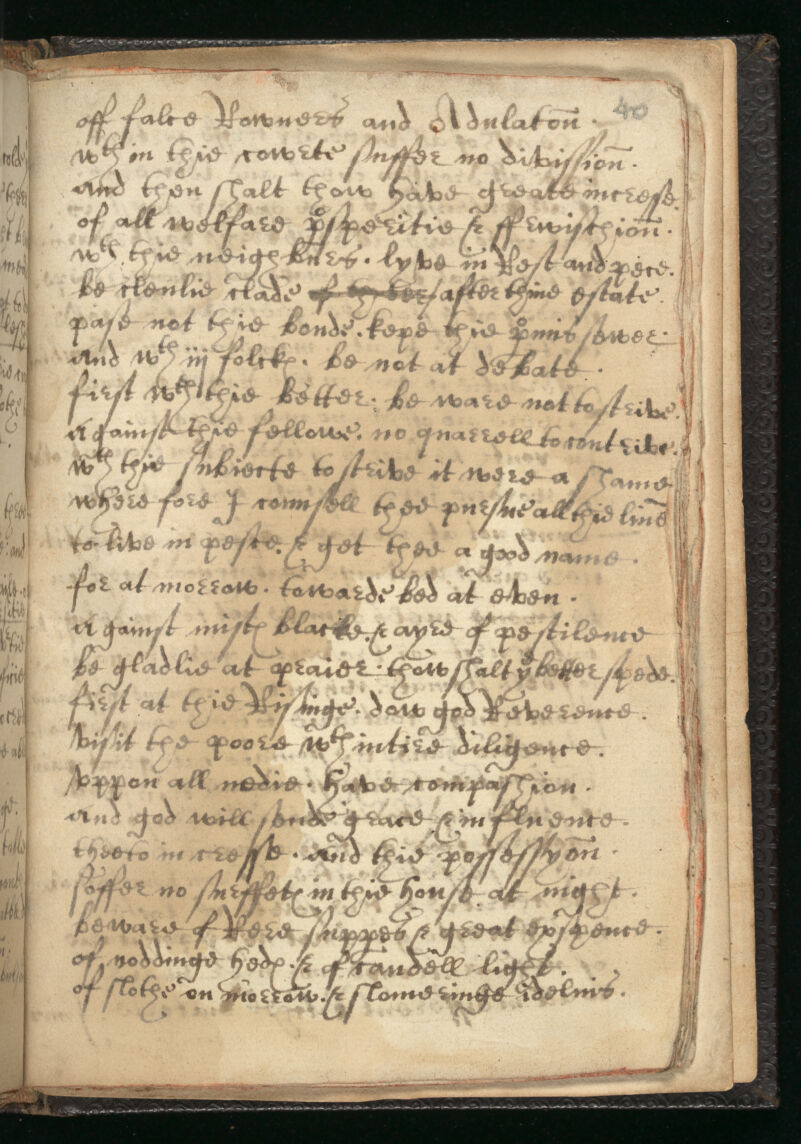 40
off falce Rowners and Adulatoñ .
wth in thie cowrte suffer no divissioñ .
and then shalt thow have greate increse .
of all welfare psperitie & ffewischioñ .
wth thie neighburs . lyve in Rest and pece .
be clenlie clade after thine estate .
pase not thie bonde . kepe thie pmis sewer .
and wth iij folckes . be not at debate .
first wth thie better . be ware not to strive .
against thie fellowe . no quarrell to contrive .
wth thie subiecte to strive it were a shame
where fore I counsell thee pursue all thie line
to live in pesce . & get thee a good name .
for at morrow . towarde bed at even .
against mistes blacke . & ayre of pestilence
be gladlie at praier . thow shalt ye better spede .
first at thie Risinge . dow god Reverence .
visit the poore wth intire diligence .
vppon all nedie . have compashion .
and god will sende grace & influence .
thee to incresse . and thie possessyon .
soffer no surffetes in thie house at night .
beware of Rere suppes & great expence .
of noddinge hedes . & of candell light .
of slothe on morrow . & slomeringe idelnis .